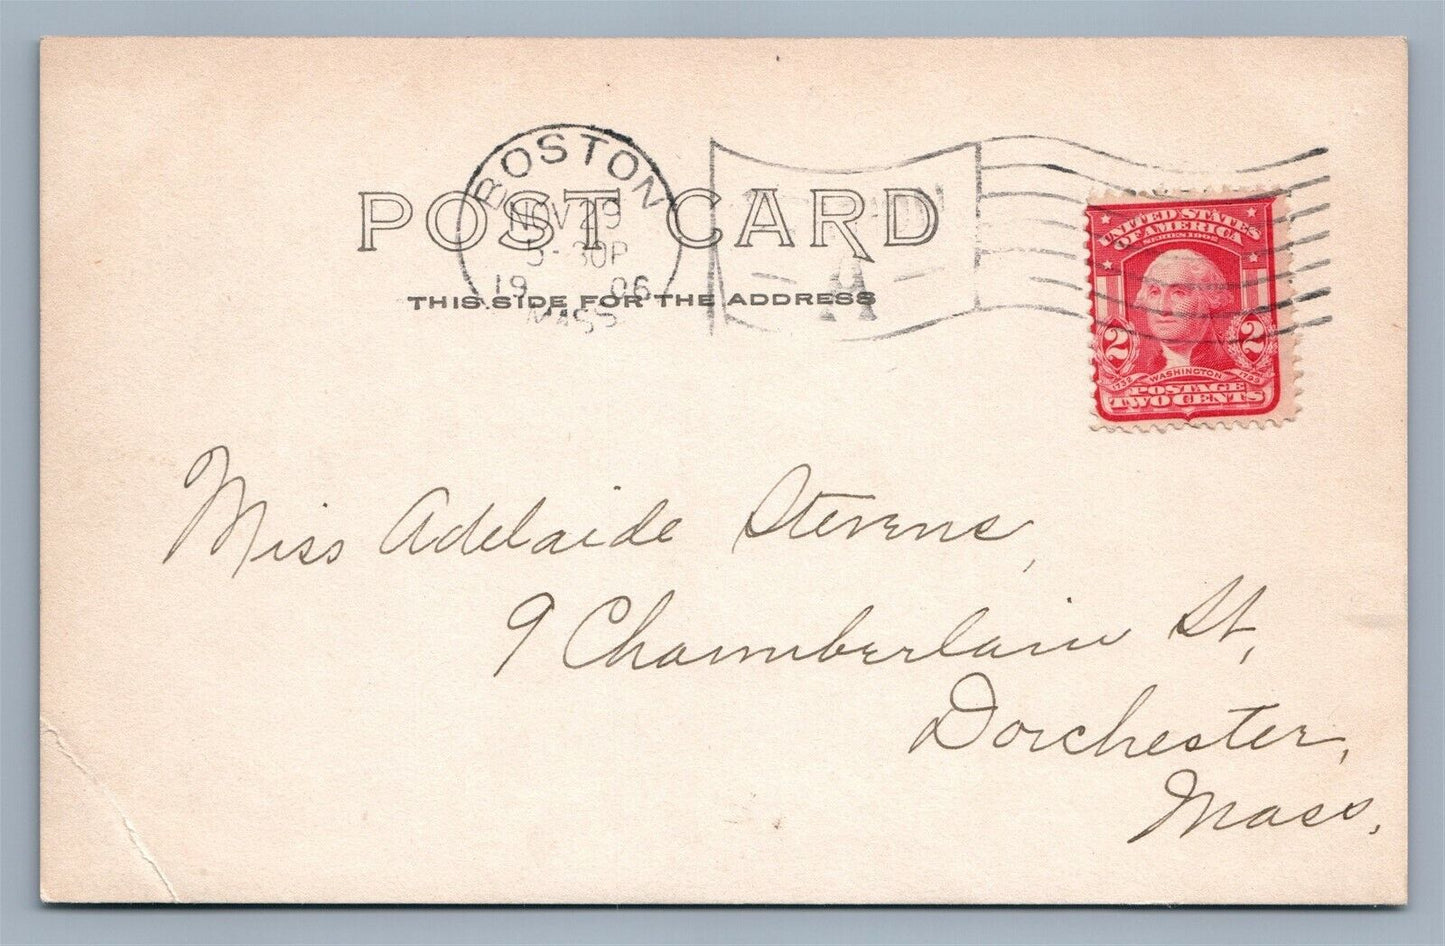 BOSTON
NOV 29
5-30P
19 06
MASS.
POST CARD
THIS SIDE FOR THE ADDRESS
A
UNITED STATES
OF AMERICA
SERIES 1902
2 2
1732 WASHINGTON 1799
POSTAGE
TWO CENTS
Miss Adelaide Stevens,
9 Chamberlain St,
Dorchester,
Mass.